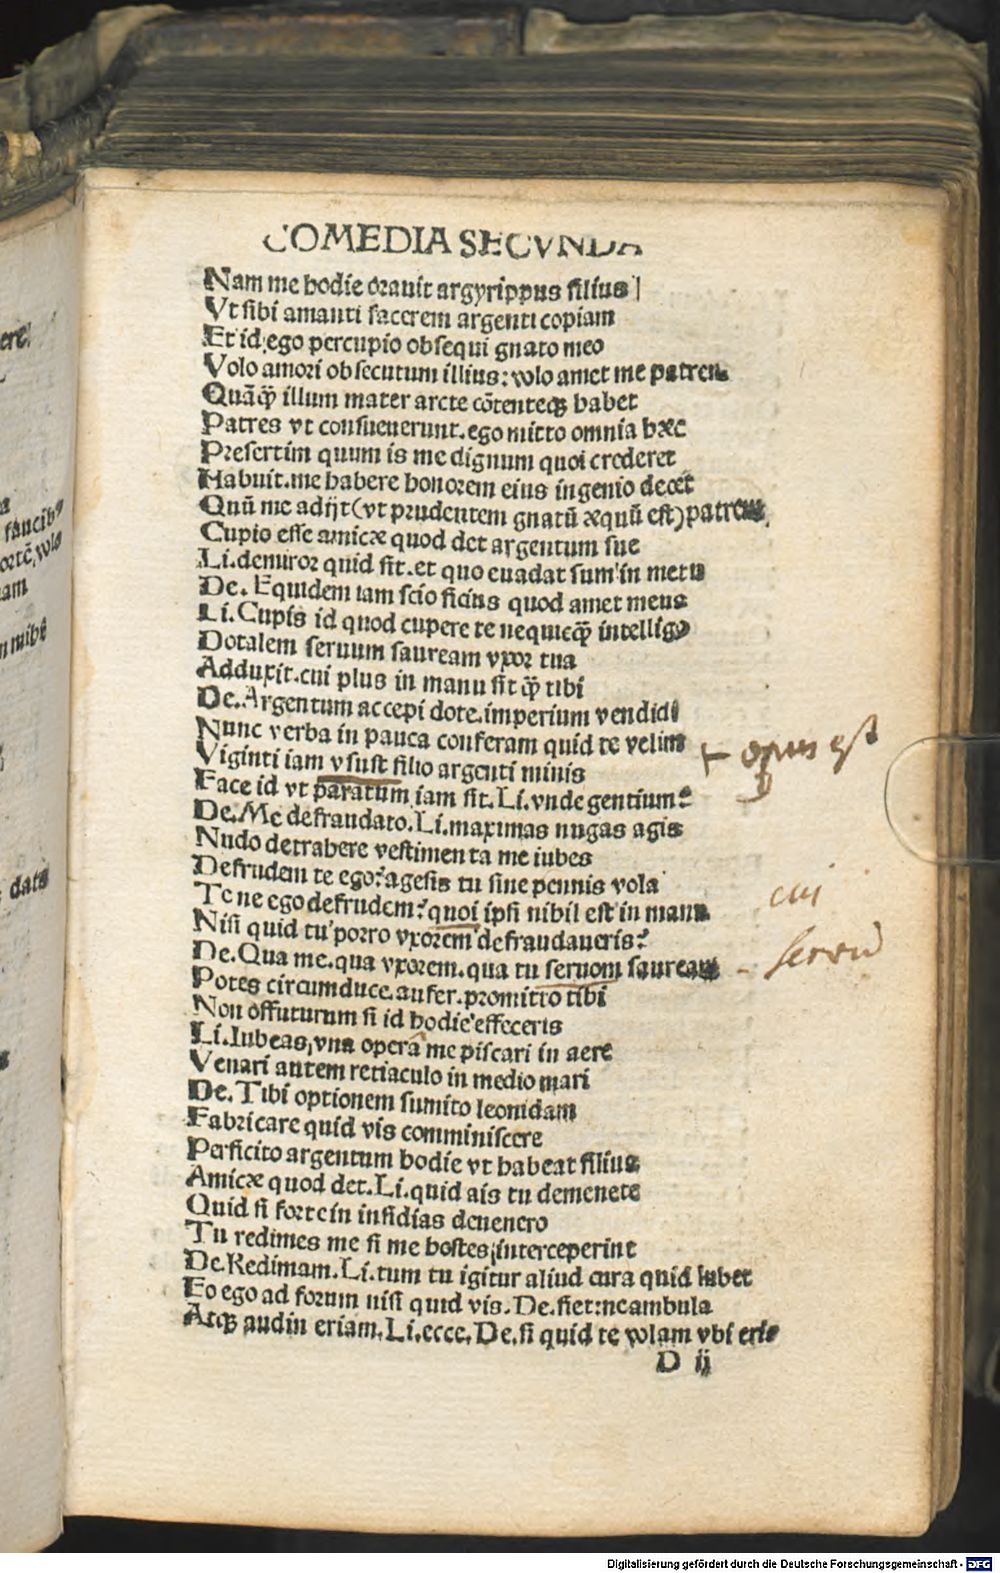 COMEDIA SECVNDA
Nam me hodie orauit argyrippus filius
Vt sibi amanti facerem argenti copiam
Et id, ego percupio obsequi gnato meo
Volo amori obsecutum illius: volo amet me patrem
Quāq̄ illum mater arcte cōtenteqȝ habet
Patres vt consueuerunt. ego mitto omnia hæc
Presertim quum is me dignum quoi crederet
Habuit. me habere honorem eius ingenio decet
Quū me adijt (vt prudentem gnatū æquū est) patrem
Cupio esse amicæ quod det argentum sue
Li. demiror quid sit. et quo euadat sum in metu
De. Equidem iam scio filius quod amet meus
Li. Cupis id quod cupere te nequicq̄ intelligo
Dotalem seruum sauream vxor tua
Adduxit. cui plus in manu sit q̄ tibi
De. Argentum accepi dote. imperium vendidi
Nunc verba in pauca conferam quid te velim
Viginti iam vsust filio argenti minis
Face id vt paratum iam sit. Li. vnde gentium?
De. Me defraudato. Li. maximas nugas agis
Nudo detrahere vestimenta me iubes
Defrudem te ego? agesis tu sine pennis vola
Te ne ego defrudem? quoi ipsi nihil est in manu
Nisi quid tu porro vxorem defraudaueris?
De. Qua me. qua vxorem. qua tu seruom sauream
Potes circumduce. aufer. promitto tibi
Non offuturum si id hodie effeceris
Li. Iubeas, vna operā me piscari in aere
Venari autem retiaculo in medio mari
De. Tibi optionem sumito leonidam
Fabricare quid vis comminiscere
Perficito argentum hodie vt habeat filius
Amicæ quod det. Li. quid ais tu demenete
Quid si forte in insidias deuenero
Tu redimes me si me hostes, interceperint
De. Redimam. Li. tum tu igitur aliud cura quid lubet
Eo ego ad forum nisi quid vis. De. fiet: neambula
Atqȝ audin etiam. Li. ecce. De. si quid te volam vbi eris
D ij
opus est
cui
seruū
fancibȝ
data
Digitalisierung gefördert durch die Deutsche Forschungsgemeinschaft - DFG